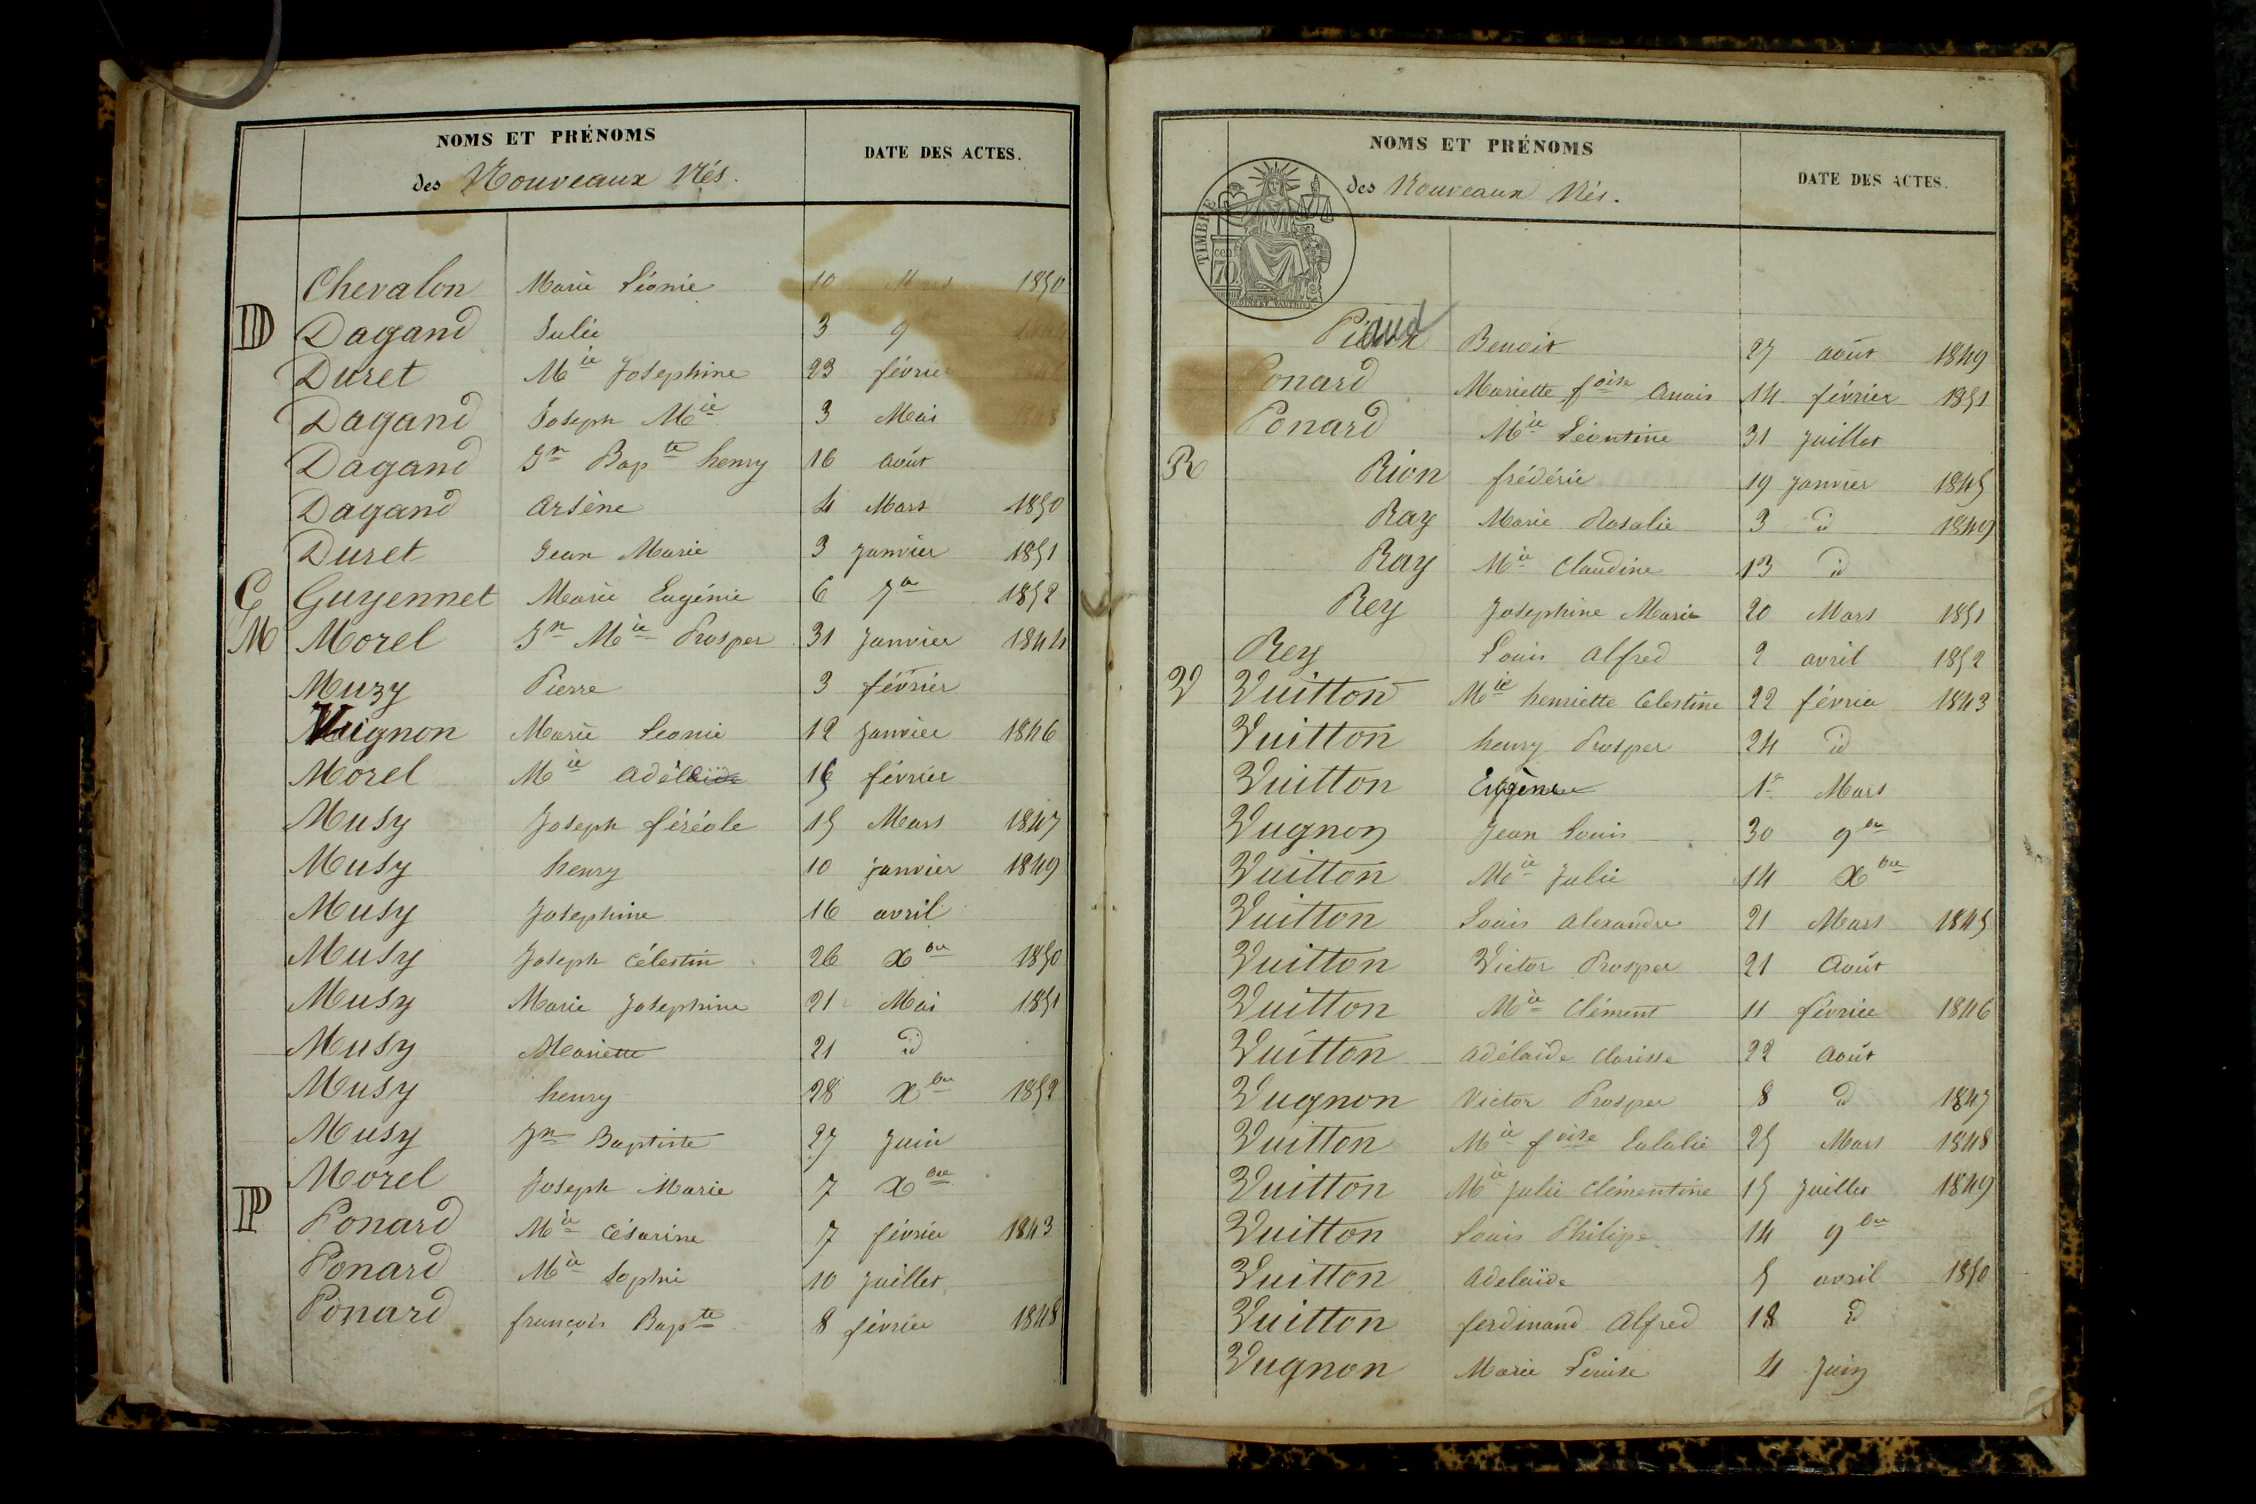 NOMS ET PRÉNOMS
des Nouveaux Nés.
DATE DES ACTES.
Chevalon Marie Léonie 10 Mars 1850
D Dagand Julie 3 9
Duret Mie Joséphine 23 février
Dagand Joseph Mie 3 Mai
Dagand Jn Bapte henry 16 août
Dagand Arsène 4 Mars 1850
Duret Jean Marie 3 Janvier 1851
G Guyennet Marie Eugénie 6 7bre 1852
M Morel Jn Mie Prosper 31 Janvier 1844
Muzy Pierre 3 février
Vuignon Marie Leonie 12 Janvier 1846
Morel Mie Adélaïde 15 février
Musy Joseph féréole 15 Mars 1847
Musy henry 10 janvier 1849
Musy Joséphine 16 avril
Musy Joseph Célestin 26 Xbre 1850
Musy Marie Joséphine 21 Mai 1851
Musy Mariette 21 id
Musy henry 28 Xbre 1852
Musy Jn Baptiste 27 Juin
Morel Joseph Marie 7 Xbre
P Ponard Mie Césarine 7 février 1843
Ponard Mie Sophie 10 Juillet
Ponard françois Bapte 8 février 1848
NOMS ET PRÉNOMS
des Nouveaux Nés.
DATE DES ACTES.
TIMBRE
70
Benoit 27 août 1849
Ponard Mariette foise Anais 14 février 1851
Ponard Mie Léontine 31 Juillet
R Rion frédéric 19 Janvier 1845
Ray Marie Rosalie 3 id 1849
Ray Mie Claudine 13 id
Rey Joséphine Marie 20 Mars 1851
Rey Louis Alfred 2 avril 1852
V Vuitton Mie henriette Celestine 22 février 1843
Vuitton henry Prosper 24 id
Vuitton Eugène 1er Mars
Vugnon Jean Louis 30 9bre
Vuitton Mie Julie 14 Xbre
Vuitton Louis Alexandre 21 Mars 1845
Vuitton Victor Prosper 21 Août
Vuitton Mie Clément 11 février 1846
Vuitton Adélaïde Clarisse 22 Août
Vugnon Victor Prosper 8 id 1847
Vuitton Mie foise Eulalie 25 Mars 1848
Vuitton Mie Julie Clémentine 15 Juillet 1849
Vuitton Louis Philipe 14 9bre
Vuitton Adelaïde 5 avril 1850
Vuitton ferdinand Alfred 18 id
Vugnon Marie Louise 4 Juin